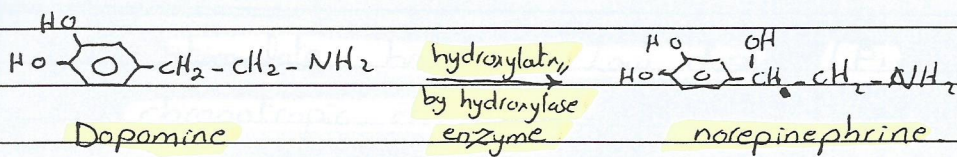 HO
HO - CH2 - CH2 - NH2
hydroxylatn,,
by hydroxylase
enzyme
HO OH
HO - CH - CH2 - NH2
Dopamine
norepinephrine